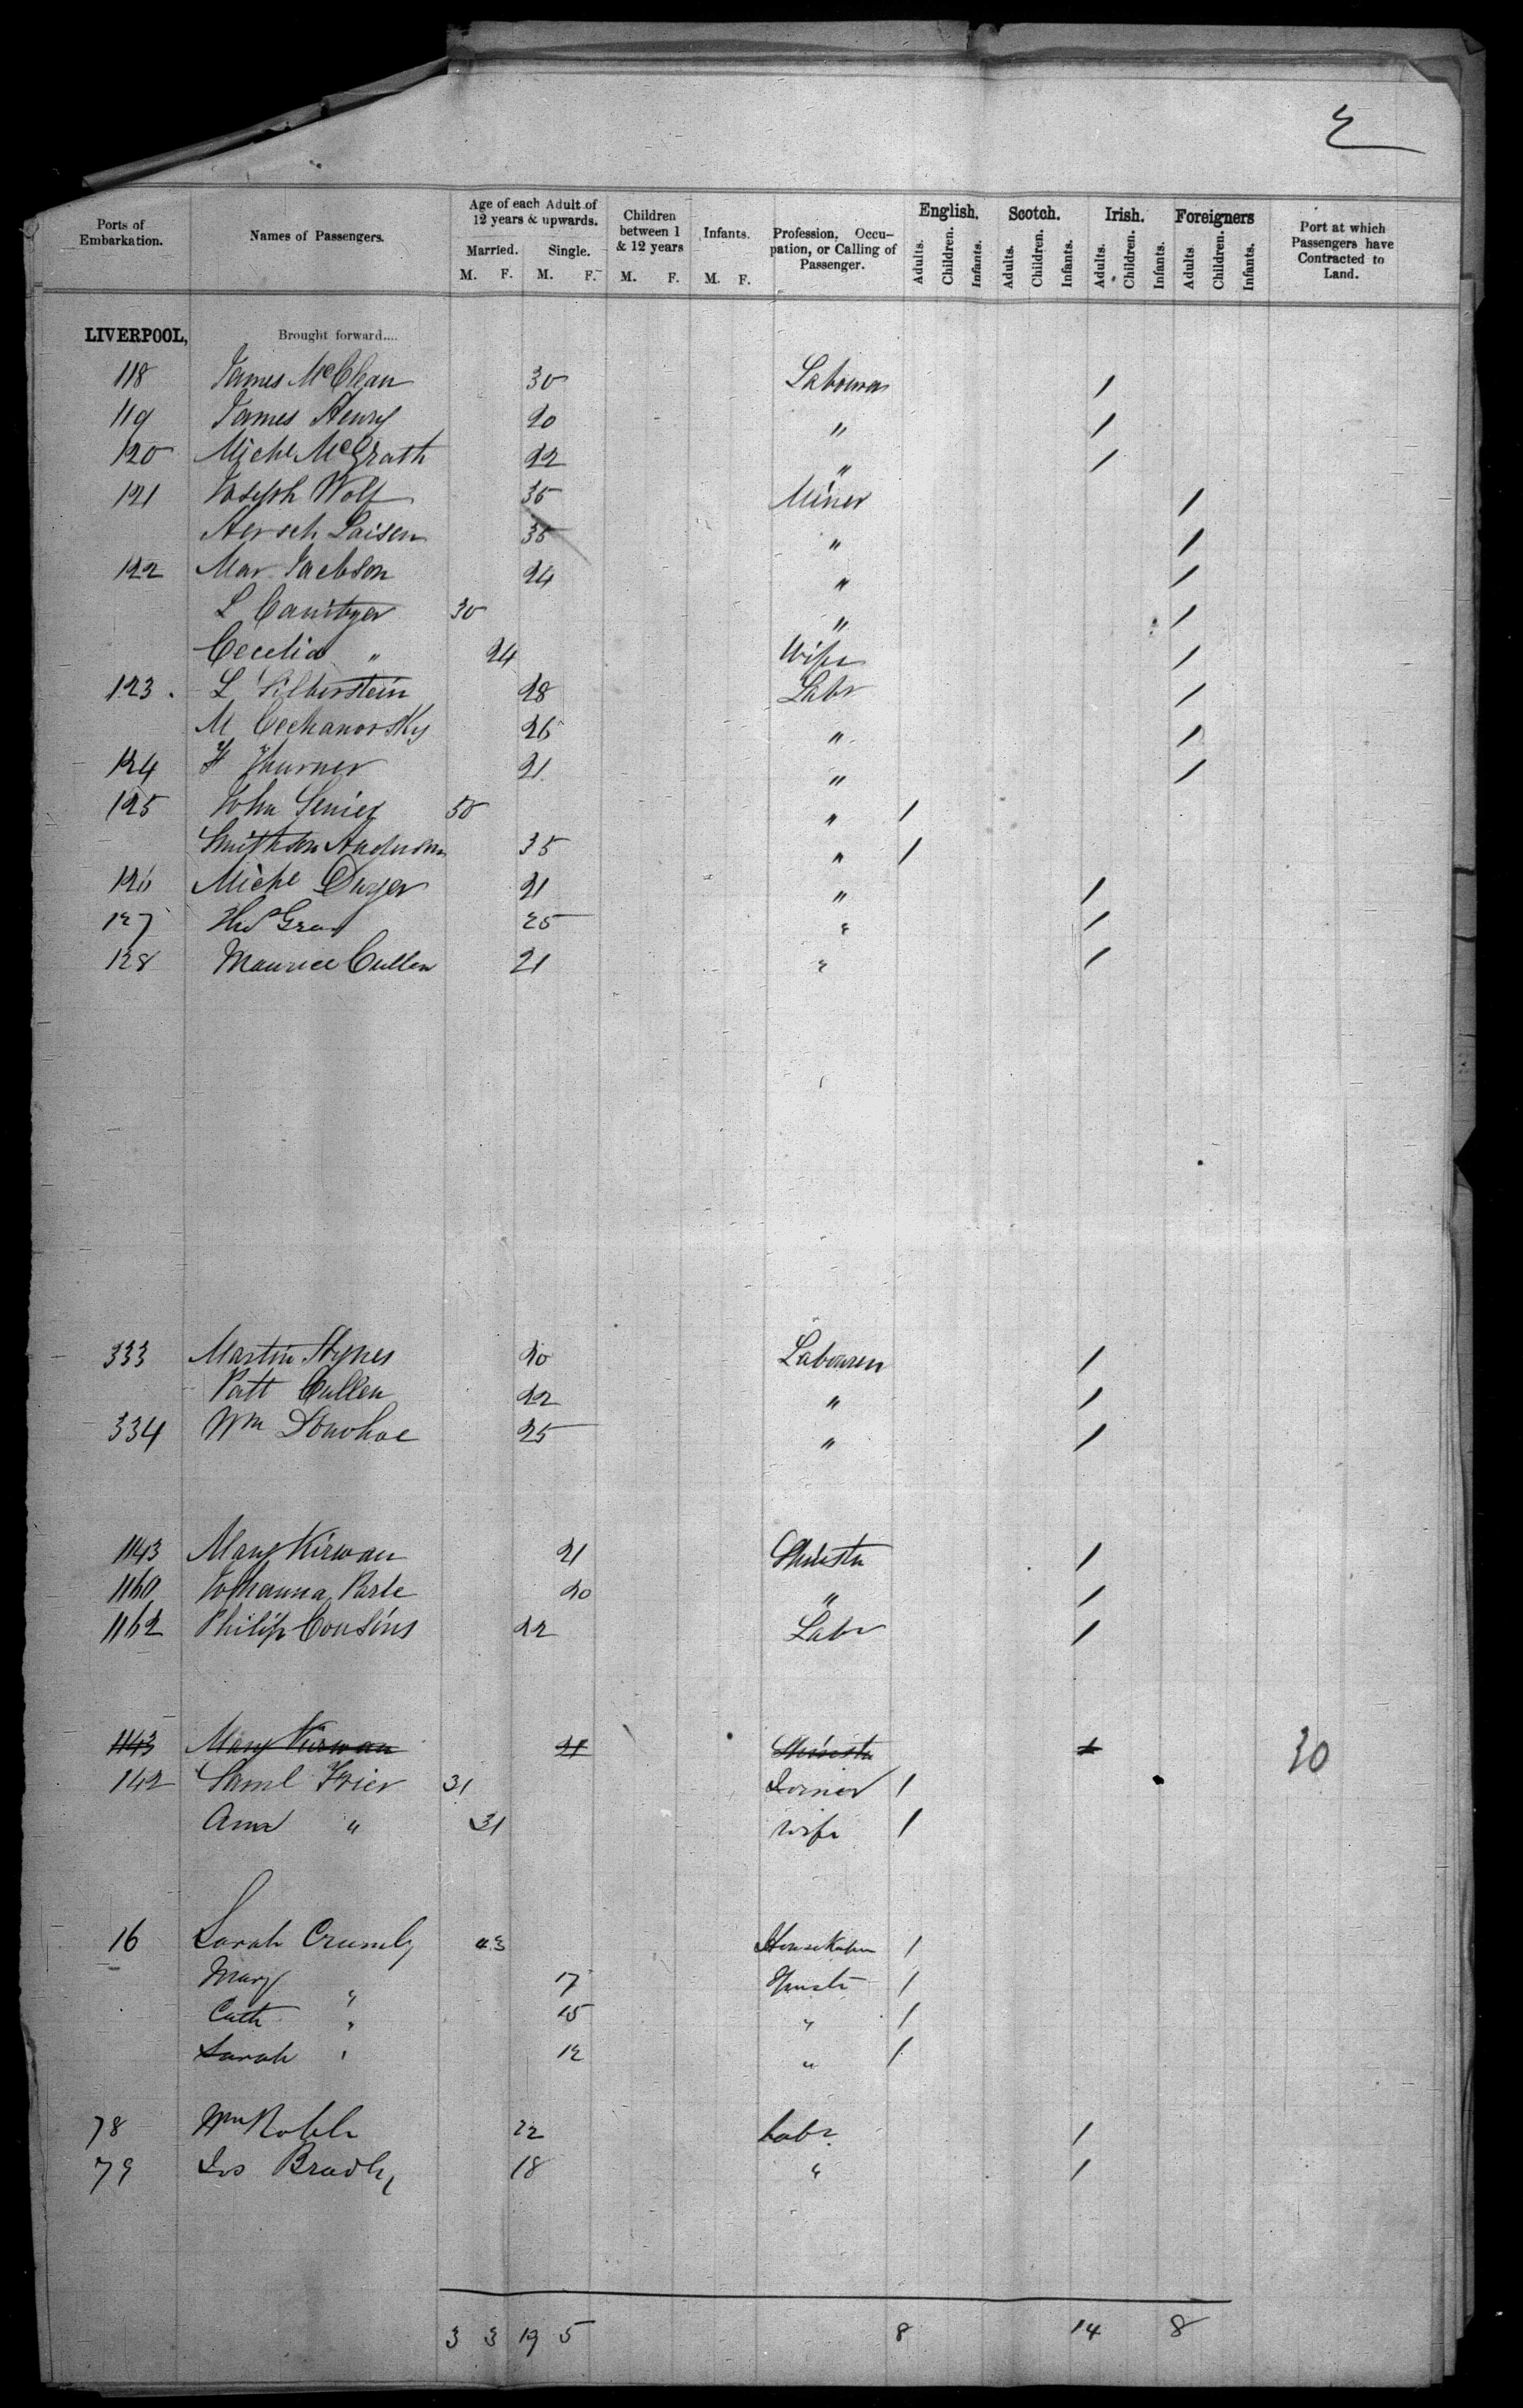 Ports of Embarkation. Names of Passengers. Age of each Adult of 12 years & upwards. Children between 1 & 12 years Infants. Profession, Occupation, or Calling of Passenger. English. Scotch. Irish. Foreigners Port at which Passengers have Contracted to Land.
Married. Single.
M. F. M. F. M. F. M. F. Adults. Children. Infants. Adults. Children. Infants. Adults. Children. Infants. Adults Children. Infants.
LIVERPOOL, Brought forward....
118 James McClean 30 Labourer 1
119 James Henry 20 " 1
120 Michl McGrath 22 " 1
121 Joseph Wolf 35 Miner 1
Hersch Laisen 35 " 1
122 Mar Jacobson 24 " 1
L Canitzer 30 " 1
Cecelia " 24 Wife 1
123. L Silberstein 28 Labr 1
M Cechanorsky 26 " 1
124 F Thurner 21 " 1
125 John Senier 50 " 1
Smithson Anderson 35 " 1
126 Michl Dwyer 21 " 1
127 Thos Gray 25 " 1
128 Maurice Cullen 21 " 1
333 Martin Hynes 20 Labourer 1
Patt Cullen 22 " 1
334 Wm Donohoe 25 " 1
1143 Mary Kirwan 21 Spinster 1
1160 Johanna 20 " 1
1162 Philip Cousins 22 Labr 1
1143 Mary Kirwan 21 Spinster 1 30
142 Saml Frier 31 Joiner 1
Ann " 31 Wife 1
16 Sarah Crumly 43 Housekeeper 1
Mary " 17 Spinstr 1
Cath " 15 " 1
Sarah " 12 " 1
78 Wm 22 Labr. 1
79 Jos Bradly 18 " 1
3 3 19 5 8 14 8